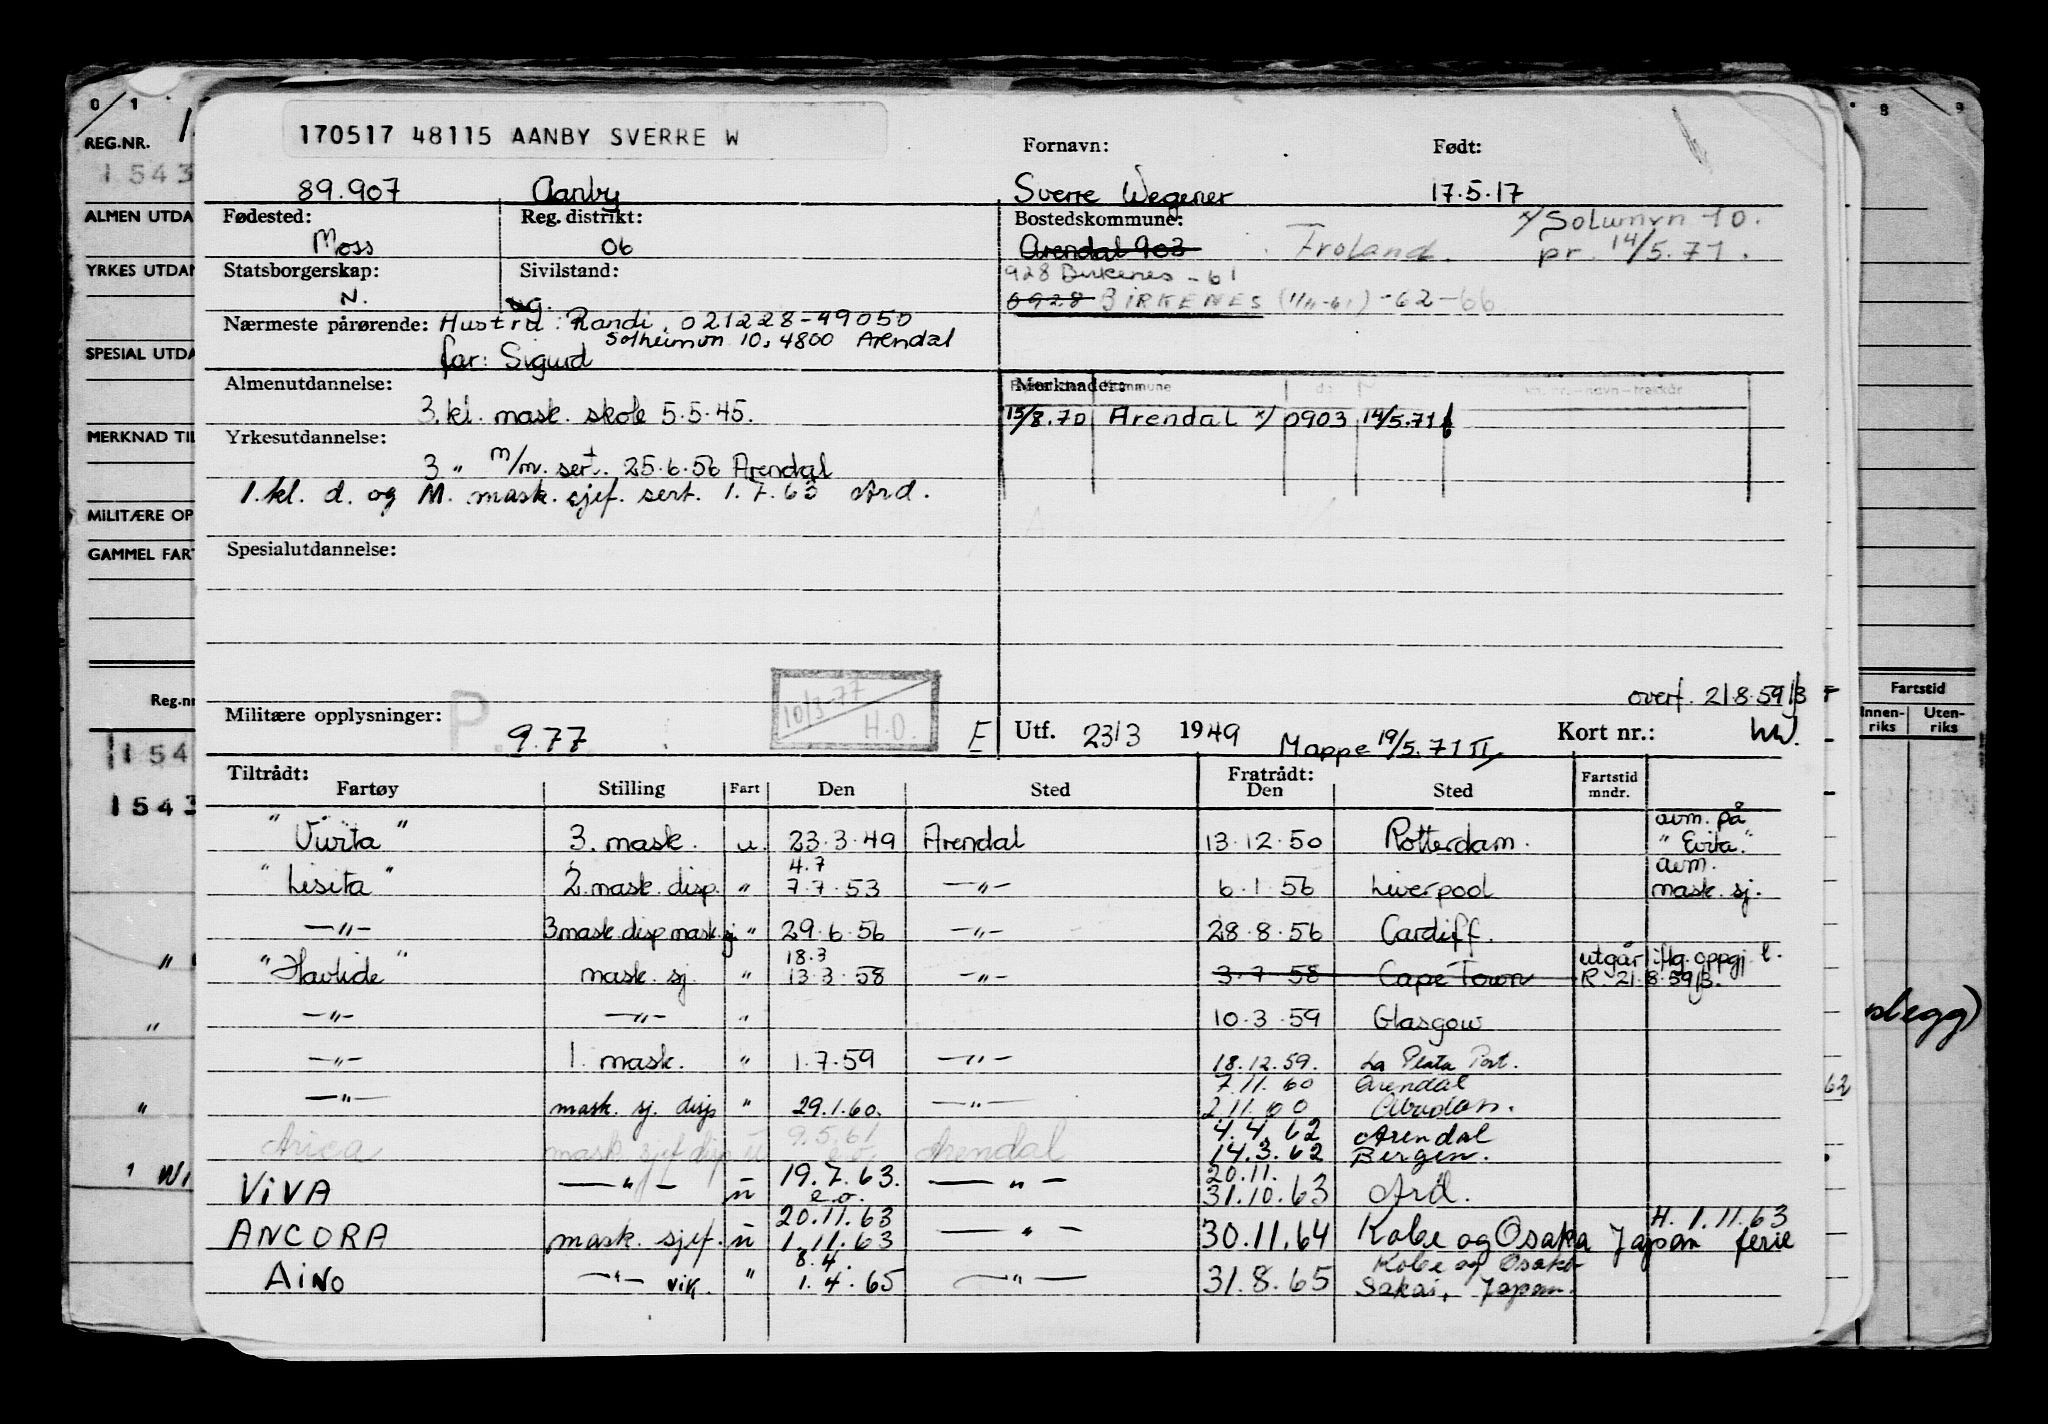 0 / 1
8 9
REG.NR.
1543
170517 48115 AANBY SVERRE W
Fornavn: Født:
89.907 Aanby Sverre Wegener 17.5.17
ALMEN UTDA
Fødested: Reg. distrikt: Bostedskommune: x/ Solumvn 10.
Moss 06 Arendal 903 Froland. pr. 14/5.71.
YRKES UTDAN
Statsborgerskap: Sivilstand: 928 Birkenes - 61
N. ug. 0928 BIRKENES (1/11-61) -62-66
Nærmeste pårørende: Hustru: Randi, 021228-49050
Solheimvn 10, 4800 Arendal
SPESIAL UTDA
far: Sigurd
Almenutdannelse: Merknader: Kommune
3. kl. mask. skole 5.5.45. 15/8.70 Arendal x/ 0903 14/5.71
MERKNAD TIL
Yrkesutdannelse:
3 " m/m. sert. 25.6.56 Arendal
1. kl. d. og M. mask. sjef. sert. 1.7.63 Ard.
MILITÆRE OP
GAMMEL FART
Spesialutdannelse:
overf. 21.8.59/B
Fartstid
Reg.nr
Innen-riks Uten-riks
P.
10/3-77 H.O.
Militære opplysninger: 9.77 E Utf. 23/3 1949 Mappe 19/5.71 II Kort nr.:
154
1543
Tiltrådt: Fratrådt:
Fartøy Stilling Fart Den Sted Den Sted Fartstid mndr.
avm. på
"Vivita" 3. mask. u. 23.3.49 Arendal 13.12.50 Rotterdam. "Evita."
4.7 avm.
"Lisita" 2. mask. disp. " 7.7.53 —"— 6.1.56 Liverpool mask. sj.
—"— 3 mask. disp mask. sj " 29.6.56 —"— 28.8.56 Cardiff.
18.3 utgår iflg. oppgj. l.
"Havlide" mask. sj. " 13.3.58 —"— 3.7.58 Cape Town R. 21.8.59/B.
—"— —"— " 10.3.59 Glasgow
slegg)
—"— 1. mask. " 1.7.59 —"— 18.12.59. La Plata Port.
7.11.60 Arendal
62
—"— mask. sj. disp " 29.1.60. —"— 2.11.60 Abadan.
9.5.61 4.4.62 Arendal
Arica mask sjef disp u e.o. Arendal 14.3.62 Bergen.
19.7.63. 20.11.
VIVA —"— u e.o. —"— 31.10.63 Ard.
20.11.63 H. 1.11.63
ANCORA mask. sjef. u 1.11.63 —"— 30.11.64 Kobe og Osaka Japan ferie
8.4. Kobe og Osaka
AINO —"— vik. " 1.4.65 —"— 31.8.65 Sakai, Japan.